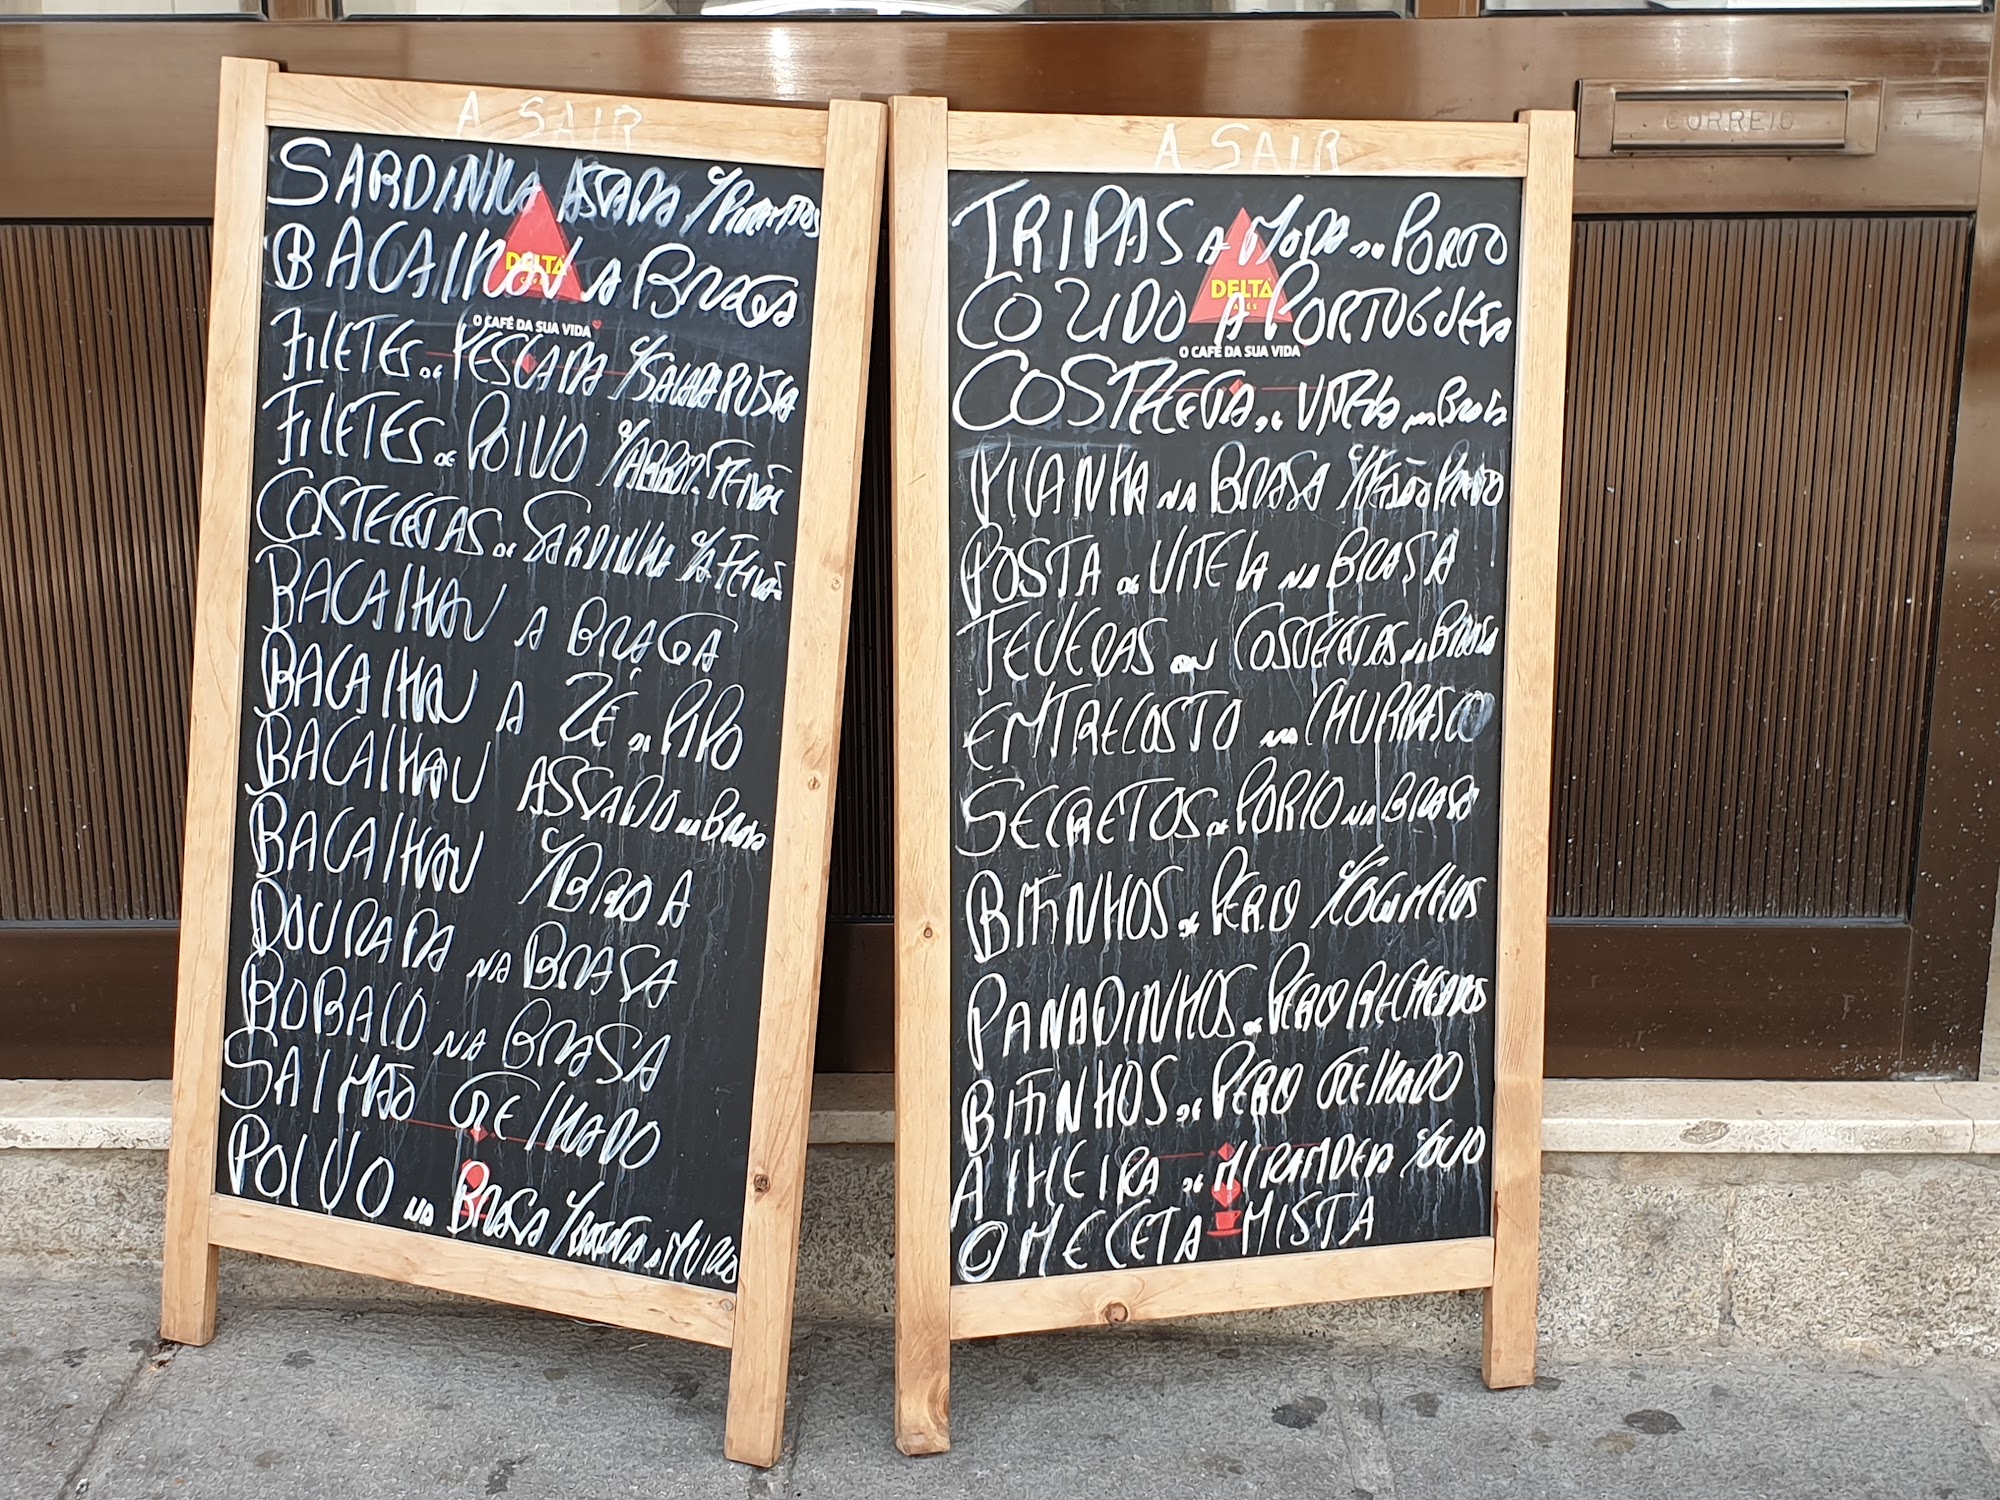 A SAIR
SARDINHA ASSADA C/PIMENTOS
BACALHAU A BRAGA
DELTA
CAFÉS
O CAFÉ DA SUA VIDA
FILETES DE PESCADA C/SALADA RUSSA
FILETES DE POLVO C/ARROZ FEIJÃO
COSTELETAS DE SARDINHA C/A FEIJÃO
BACALHAU A BRAGA
BACALHAU A ZÉ DO PIPO
BACALHAU ASSADO NA BRASA
BACALHAU C/BROA
DOURADA NA BRASA
ROBALO NA BRASA
SALMÃO GRELHADO
POLVO NA BRASA C/BATATA A MURRO
A SAIR
TRIPAS A MODA DO PORTO
COZIDO A PORTUGUESA
DELTA
CAFÉS
O CAFÉ DA SUA VIDA
COSTELETA DE VITELA NA BRASA
PICANHA NA BRASA C/FEIJÃO PRETO
POSTA DE VITELA NA BRASA
FEVERAS OU COSTELETAS NA BRASA
ENTRECOSTO NO CHURRASCO
SECRETOS DE PORCO NA BRASA
BIFINHOS DE PERU C/COGUMELOS
PANADINHOS DE PERU RECHEADOS
BIFINHOS DE PERU GRELHADO
ALHEIRA DE MIRANDELA C/OVO
OMELETA MISTA
CORREIO